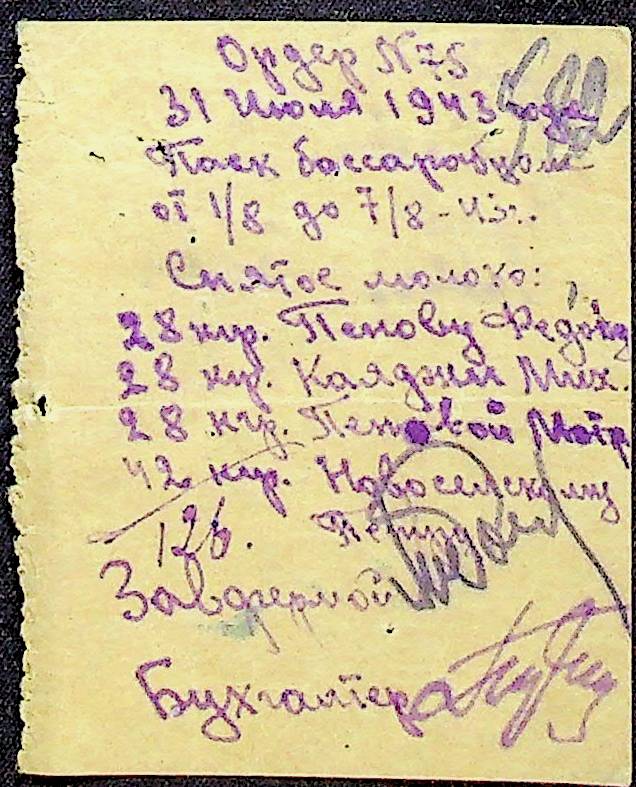 Ордер N75
31 Июля 1943 года
Паек бессарабцам
от 1/8 до 7/8 - 43г.
Снятое молоко:
28 кир. Пенову Федору
28 кир. Каяджи Мих.
28 кир. Пеновой Мотр
42 кир. Новоселскому
126. Петру
Завфермой
Бухгалтер